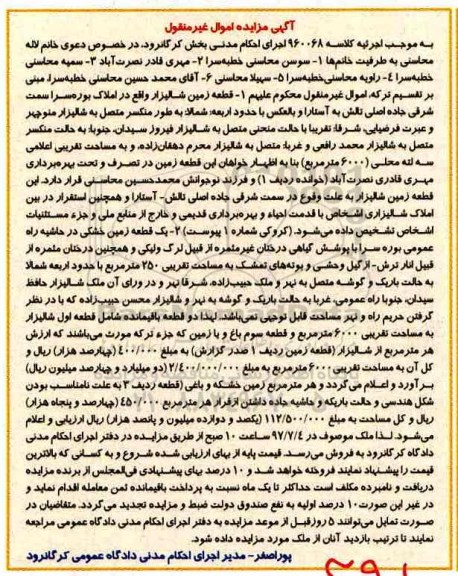 آگهی مزایده اموال غیرمنقول
به موجب اجرائیه کلاسه ۹۶۰۰۶۸ اجرای احکام مدنی بخش کرگانرود، در خصوص دعوی خانم لاله
محاسنی به طرفیت خانم‌ها ۱- سوسن محاسنی خطبه‌سرا ۲- مهری قادر نصرت‌آباد ۳- سمیه محاسنی
خطبه‌سرا ۴- راویه محاسنی‌خطبه‌سرا ۵- سهیلا محاسنی ۶- آقای محمد حسین محاسنی خطبه‌سرا، مبنی
بر تقسیم ترکه، اموال غیرمنقول محکوم علیهم ۱- قطعه زمین شالیزار واقع در املاک بوره‌سرا سمت
شرقی جاده اصلی تالش به آستارا و بالعکس با حدود اربعه: شمالا: به طور منکسر متصل به شالیزار منوچهر
و عبرت فرضیایی، شرقا: تقریبا با حالت منحنی متصل به شالیزار فیروز سیدان، جنوبا: به حالت منکسر
متصل به شالیزار محمد رافعی و غربا: متصل به شالیزار محرم دهقان‌زاده، و به مساحت تقریبی اعلامی
سه لته محلی (۶۰۰۰ مترمربع) بنا به اظهار خواهان این قطعه زمین در تصرف و تحت بهره‌برداری
مهری قادری نصرت‌آباد (خوانده ردیف ۱) و فرزند نوجوانش محمدحسین محاسنی قرار دارد. این
قطعه زمین شالیزار به علت وقوع در سمت شرقی جاده اصلی تالش- آستارا و همچنین استقرار در بین
املاک شالیزاری اشخاص با قدمت احیاء و بهره‌برداری قدیمی و خارج از منابع ملی و جزء مستثنیات
اشخاص تشخیص داده می‌شود. (کروکی شماره ۱ پیوست) ۲- یک قطعه زمین خشکی در حاشیه راه
عمومی بوره سرا با پوشش گیاهی درختان غیرمثمره از قبیل لرگ ولیکی و همچنین درختان مثمره از
قبیل انار ترش- ازگیل وحشی و بوته‌های تمشک به مساحت تقریبی ۲۵۰ مترمربع با حدود اربعه شمالا
به حالت باریک و گوشه متصل به نهر و ملک حبیب‌زاده، شرقا نهر و در ورای آن ملک شالیزار حافظ
سیدان، جنوبا راه عمومی، غربا به حالت باریک و گوشه به نهر و شالیزار محسن حبیب‌زاده که با در نظر
گرفتن حریم راه و نهر مساحت قابل توجهی نمی‌باشد. لهذا دو قطعه باقیمانده شامل قطعه اول شالیزار
به مساحت تقریبی ۶۰۰۰ مترمربع و قطعه سوم باغ و با زمین که جزء ترکه مورث می‌باشند که ارزش
هر مترمربع از شالیزار (قطعه زمین ردیف ۱ صدر گزارش) به مبلغ ۴۰۰/۰۰۰ (چهارصد هزار) ریال و
کل آن به مساحت تقریبی ۶۰۰۰ مترمربع به مبلغ ۲/۴۰۰/۰۰۰/۰۰۰ (دو میلیارد و چهارصد میلیون ریال)
برآورد و اعلام می‌گردد و هر مترمربع زمین خشکه و باغی (قطعه ردیف ۳ به علت نامناسب بودن
شکل هندسی و حالت باریکه و حاشیه جاده داشتن ازقرار هر مترمربع ۴۵۰/۰۰۰ (چهارصد و پنجاه هزار)
ریال و کل مساحت به مبلغ ۱۱۲/۵۰۰/۰۰۰ (یکصد و دوازده میلیون و پانصد هزار) ریال ارزیابی و اعلام
می‌شود. لذا ملک موصوف در ۹۷/۷/۴ ساعت ۱۰ صبح از طریق مزایده در دفتر اجرای احکام مدنی
دادگاه کرگانرود به فروش می‌رسد. قیمت پایه از بهای ارزیابی شده شروع و به کسانی که بالاترین
قیمت را پیشنهاد نمایند فروخته خواهد شد و ۱۰ درصد بهای پیشنهادی فی‌المجلس از برنده مزایده
دریافت و نامبرده مکلف است حداکثر تا یک ماه نسبت به پرداخت باقیمانده ثمن معامله اقدام نماید و
در غیر این صورت ۱۰ درصد اولیه به نفع صندوق دولت ضبط و مزایده تجدید می‌گردد. متقاضیان در
صورت تمایل می‌توانند ۵ روزقبل از موعد مزایده به دفتر اجرای احکام مدنی دادگاه عمومی مراجعه
نمایند تا ترتیب بازدید آنان از ملک مورد مزایده داده شود.
پوراصغر- مدیر اجرای احکام مدنی دادگاه عمومی کرگانرود